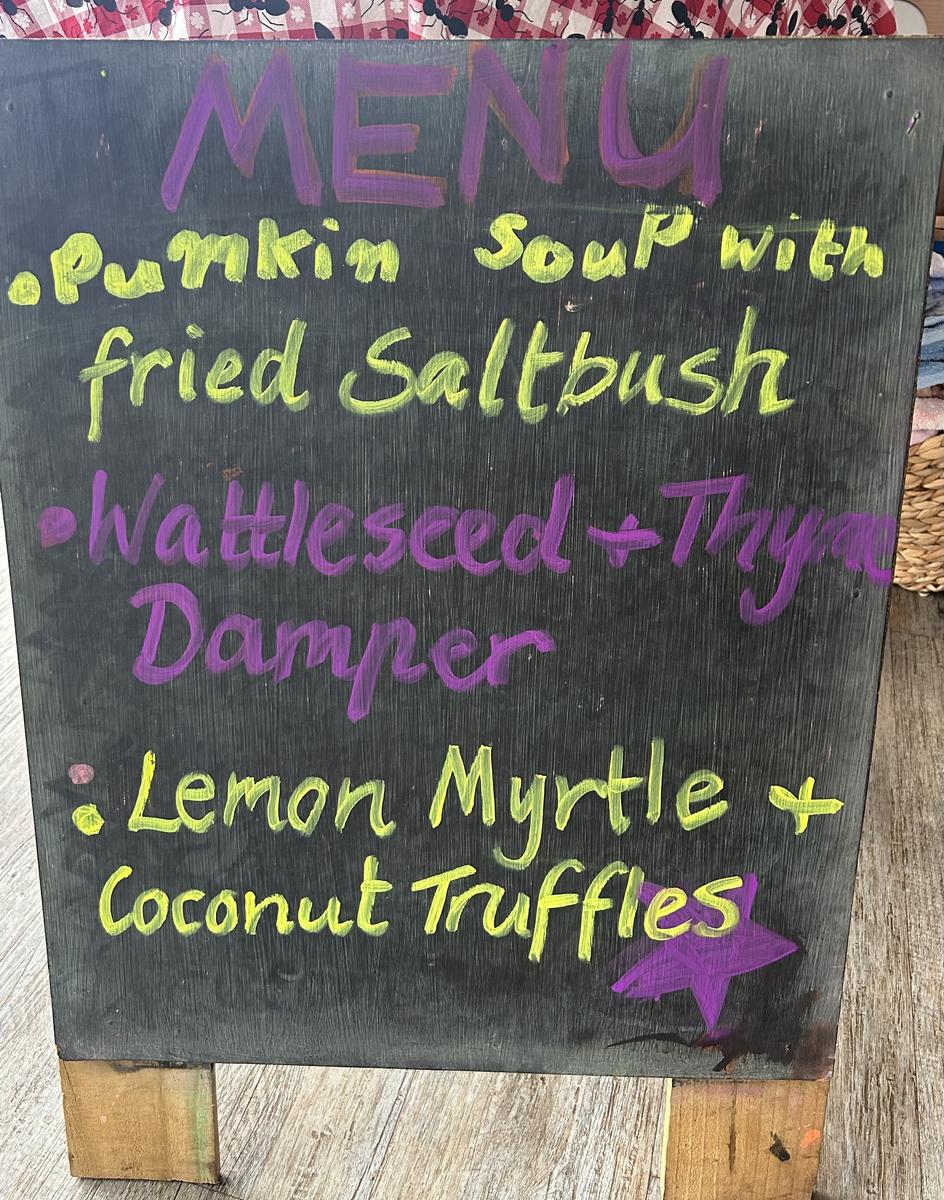 MENU
• Pumkin Soup with
fried Saltbush
• Wattleseed + Thyme
Damper
• Lemon Myrtle +
Coconut Truffles